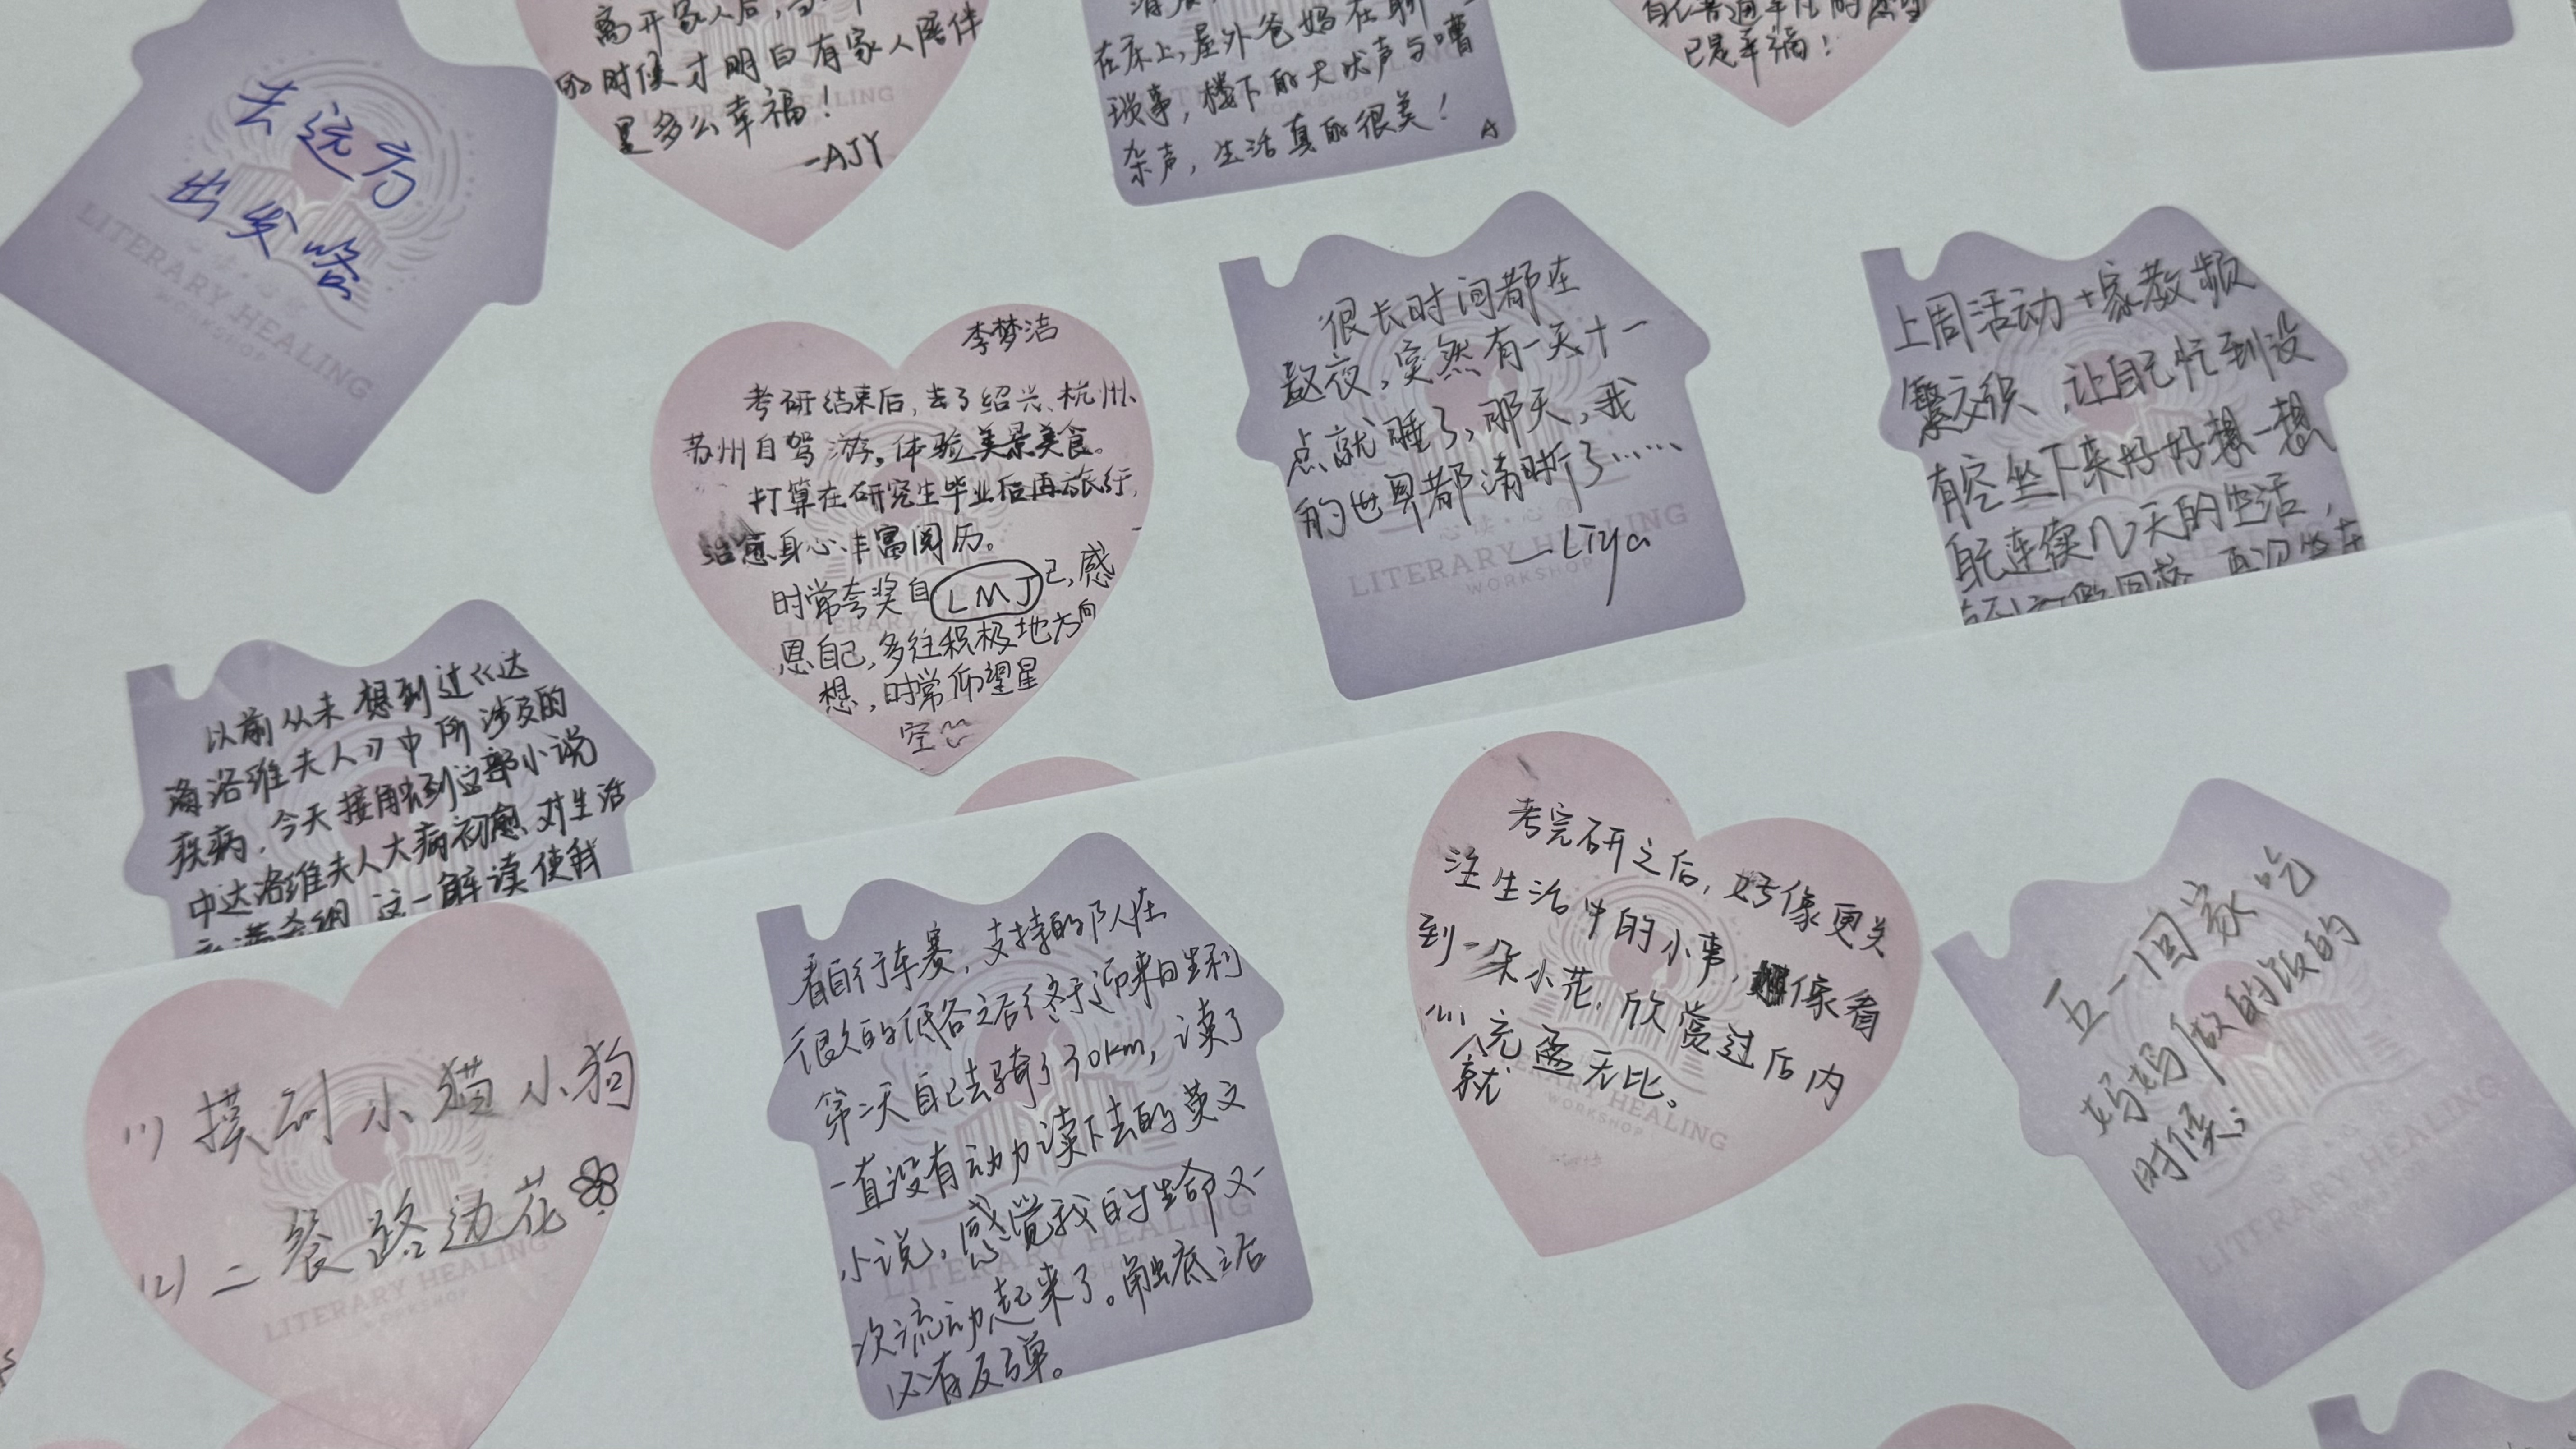 去远方
出发咯
离开家人后,
的时候才明白有家人陪伴
是多么幸福!
-AJY
在床上,屋外爸妈在聊
琐事,楼下的犬吠声与嘈
杂声,生活真的很美!
已是幸福!
李梦洁
考研结束后,去了绍兴、杭州、
苏州自驾游,体验美景美食。
打算在研究生毕业后再旅行,
治愈身心、丰富阅历。
时常夸奖自己,感
LMJ
恩自己,多往积极地方向
想,时常仰望星
空
很长时间都在
熬夜,突然有一天十一
点就睡了,那天,我
的世界都清晰了……
—Liya
LITERARY HEALING
WORKSHOP
上周活动+家教频
繁交织,让自己忙到没
有空坐下来好好想一想
自己连续几天的生活,
以前从未想到过《达
洛维夫人》中所涉及的
疾病,今天接触到这部小说
中达洛维夫人大病初愈,对生活
这一解读使我
(1)摸到小猫小狗
(2)二餐路边花
LITERARY HEALING
WORKSHOP
看自行车赛,支持的队人在
很久的低谷之后终于迎来胜利
第二天自己去骑了30km,读了
一直没有动力读下去的英文
小说,感觉我的生命又一
次流动起来了。触底之后
必有反弹。
考完研之后,好像更关
注生活中的小事,像看
到一朵小花,欣赏过后内
心充盈无比。
就
LITERARY HEALING
WORKSHOP
五一回家吃
妈妈做的饭的
时候;
LITERARY HEALING